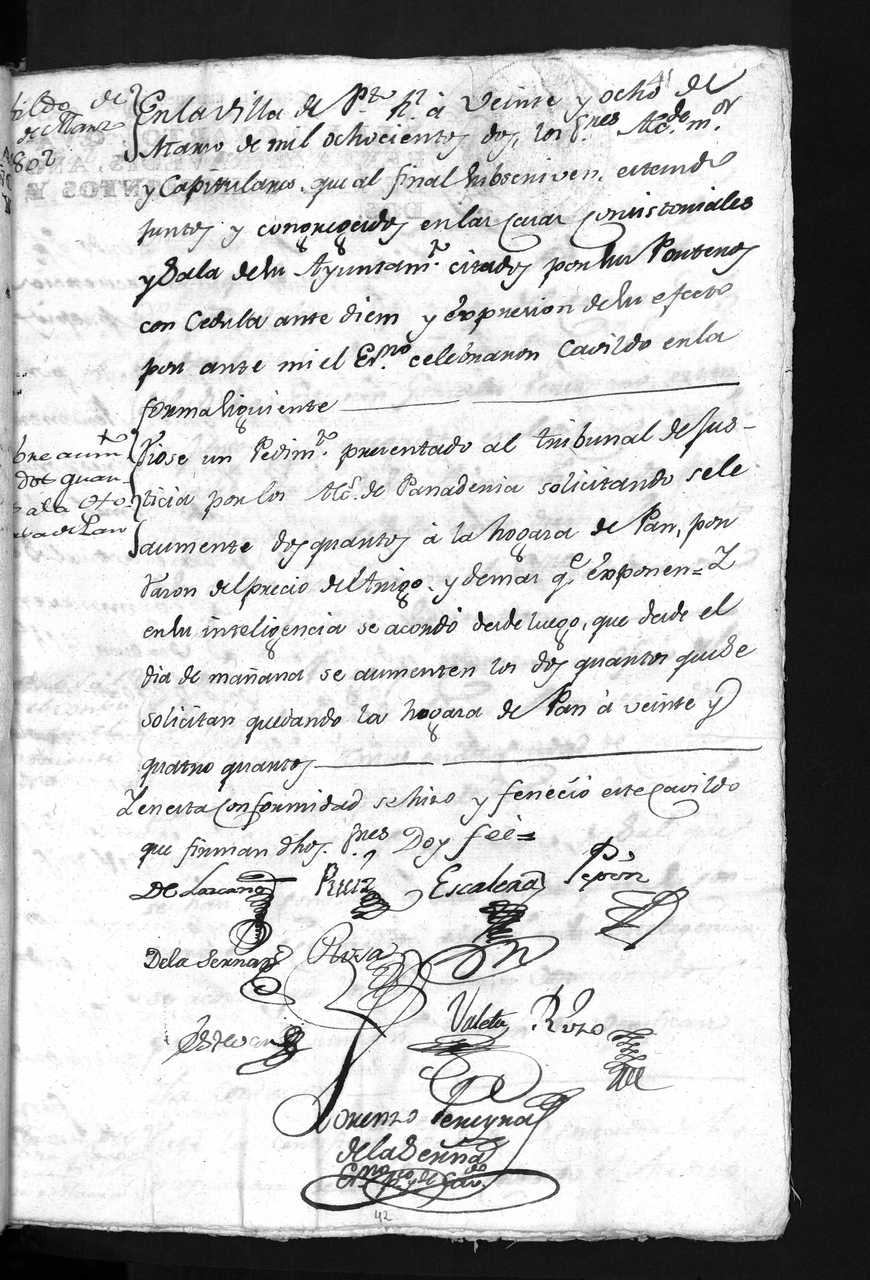 de
de Marzo
802
En la Villa de Pto. Rl. à Veinte y ocho de
Marzo de mil ochocientos dos, los Sres. Alcde. mor
y Capitulares, que al final subscriven, estando
juntos y congregados en las Casas Consistoriales
y Sala de su Ayuntamto. citados por sus Porteros
con Cedula ante diem y expresion de su efecto
por ante mi el Esno. celebraron Cavildo en la
forma siguiente
bre aumto
dos quar-
a la Ho-
za de Pan
Viose un Pedimto. presentado al tribunal de Jus-
ticia por los Mos. de Panaderia solicitando se le
aumente dos quartos à la hogaza de Pan, por
razon del precio del trigo, y demas qe. exponen = Y
en su inteligencia se acordó desde luego, que desde el
dia de mañana se aumenten los dos quartos que se
solicitan quedando la hogaza de Pan à veinte y
quatro quartos
Y en esta Conformidad se hizo y feneció este Cavildo
que firman dhos. Sres. Doy feé =
De Lozcano Ruiz Escalera Pepon
De la Serna Rosa
Estevan Valeta Rizo
Lorenzo Pereyra
de la Serna
Esno. pco. y de Cavdo.
42